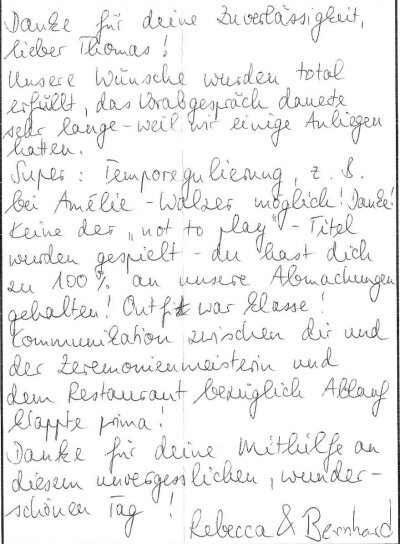 Danke für deine Zuverlässigkeit,
lieber Thomas!
Unsere Wünsche wurden total
erfüllt, das Vorabgespräch dauerte
sehr lange - weil wir einige Anliegen
hatten.
Super: Temporegulierung, z. B.
bei Amélie - Walzer möglich! Danke!
Keine der „not to play" - Titel
wurden gespielt - du hast dich
zu 100% an unsere Abmachungen
gehalten! Outfit war klasse!
Kommunikation zwischen dir und
der Zeremonienmeisterin und
dem Restaurant bezüglich Ablauf
klappte prima!
Danke für deine Mithilfe an
diesem unvergesslichen, wunder-
schönen Tag!
Rebecca & Bernhard